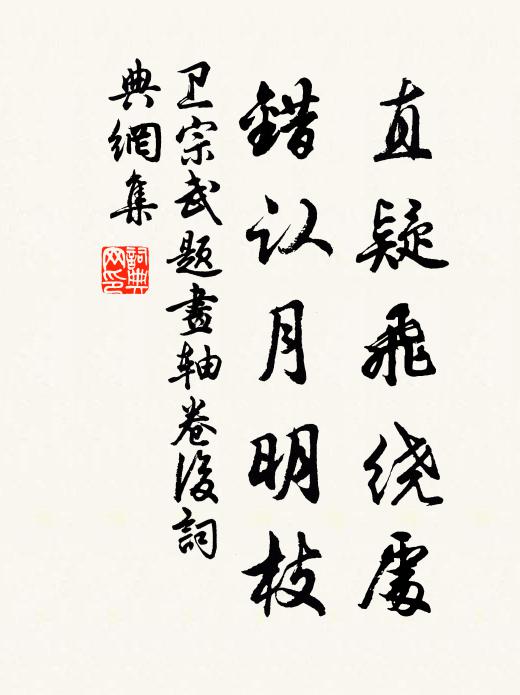 直疑飛绕處
错认月明枝
卫宗武题畫轴卷後詞
典網集
詞典
网印